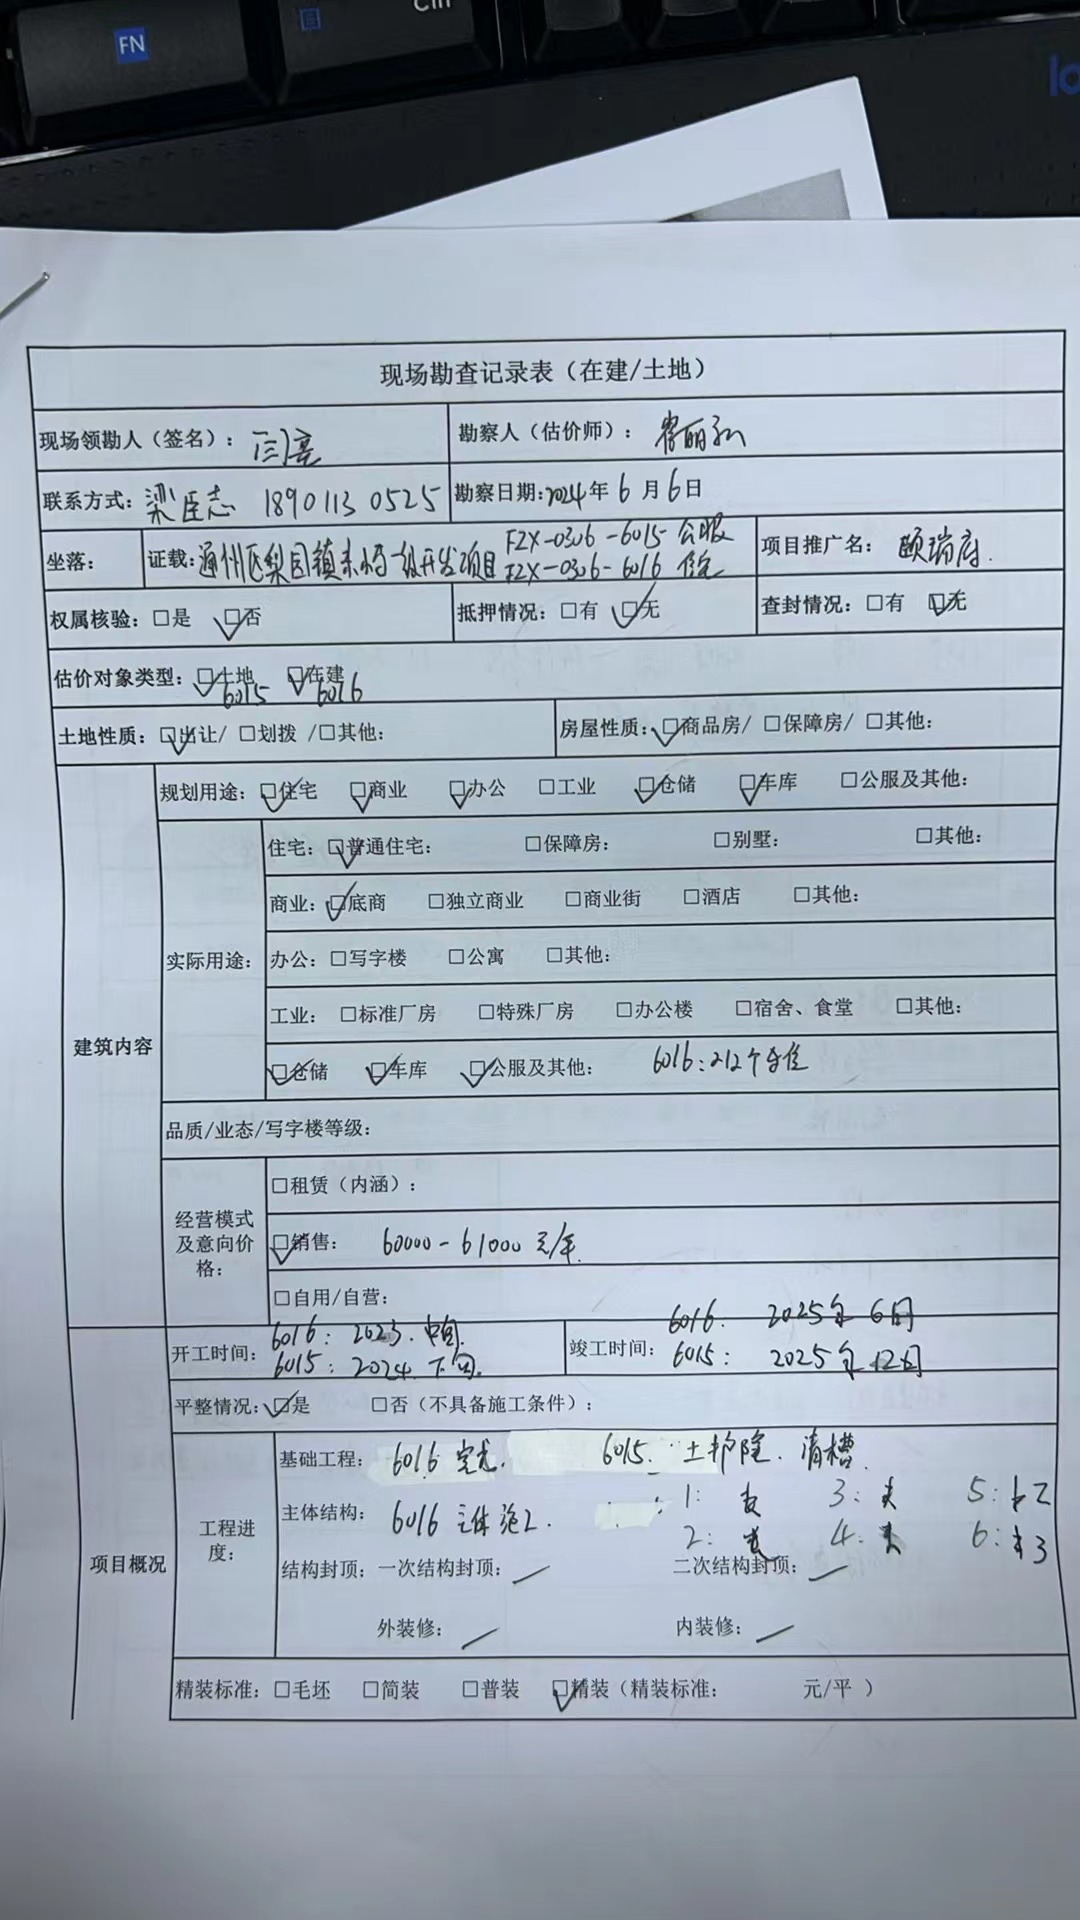 FN
现场勘查记录表（在建/土地）
现场领勘人（签名）：闫亮 勘察人（估价师）：
联系方式：梁臣志 18901130525 勘察日期：2024年6月6日
坐落： 证载：通州区梨园镇 一级开发项目 FZX-0306-6015 公服 项目推广名：颐瑞府.
FZX-0306-6016 住宅
权属核验：□是 ☑否 抵押情况：□有 ☑无 查封情况：□有 ☑无
估价对象类型：☑土地 ☑在建
6015 6016
土地性质：☑出让/ □划拨 /□其他： 房屋性质：☑商品房/ □保障房/ □其他：
建筑内容
规划用途：☑住宅 ☑商业 ☑办公 □工业 ☑仓储 ☑车库 □公服及其他：
实际用途：
住宅：☑普通住宅： □保障房： □别墅： □其他：
商业：☑底商 □独立商业 □商业街 □酒店 □其他：
办公：□写字楼 □公寓 □其他：
工业：□标准厂房 □特殊厂房 □办公楼 □宿舍、食堂 □其他：
☑仓储 ☑车库 ☑公服及其他： 6016：212个车位
品质/业态/写字楼等级：
经营模式及意向价格：
□租赁（内涵）：
☑销售： 60000-61000元/平
□自用/自营：
项目概况
开工时间：6016：2023.中旬. 竣工时间：6016. 2025年6月
6015：2024.下旬. 6015： 2025年12月
平整情况：☑是 □否（不具备施工条件）：
工程进度：
基础工程：6016 完成. 6015. 土护降. 清槽.
主体结构：6016 主体施工. 1： 3： 5：
2： 4： 6：
结构封顶：一次结构封顶：/ 二次结构封顶：/
外装修：/ 内装修：/
精装标准：□毛坯 □简装 □普装 ☑精装（精装标准： 元/平 ）